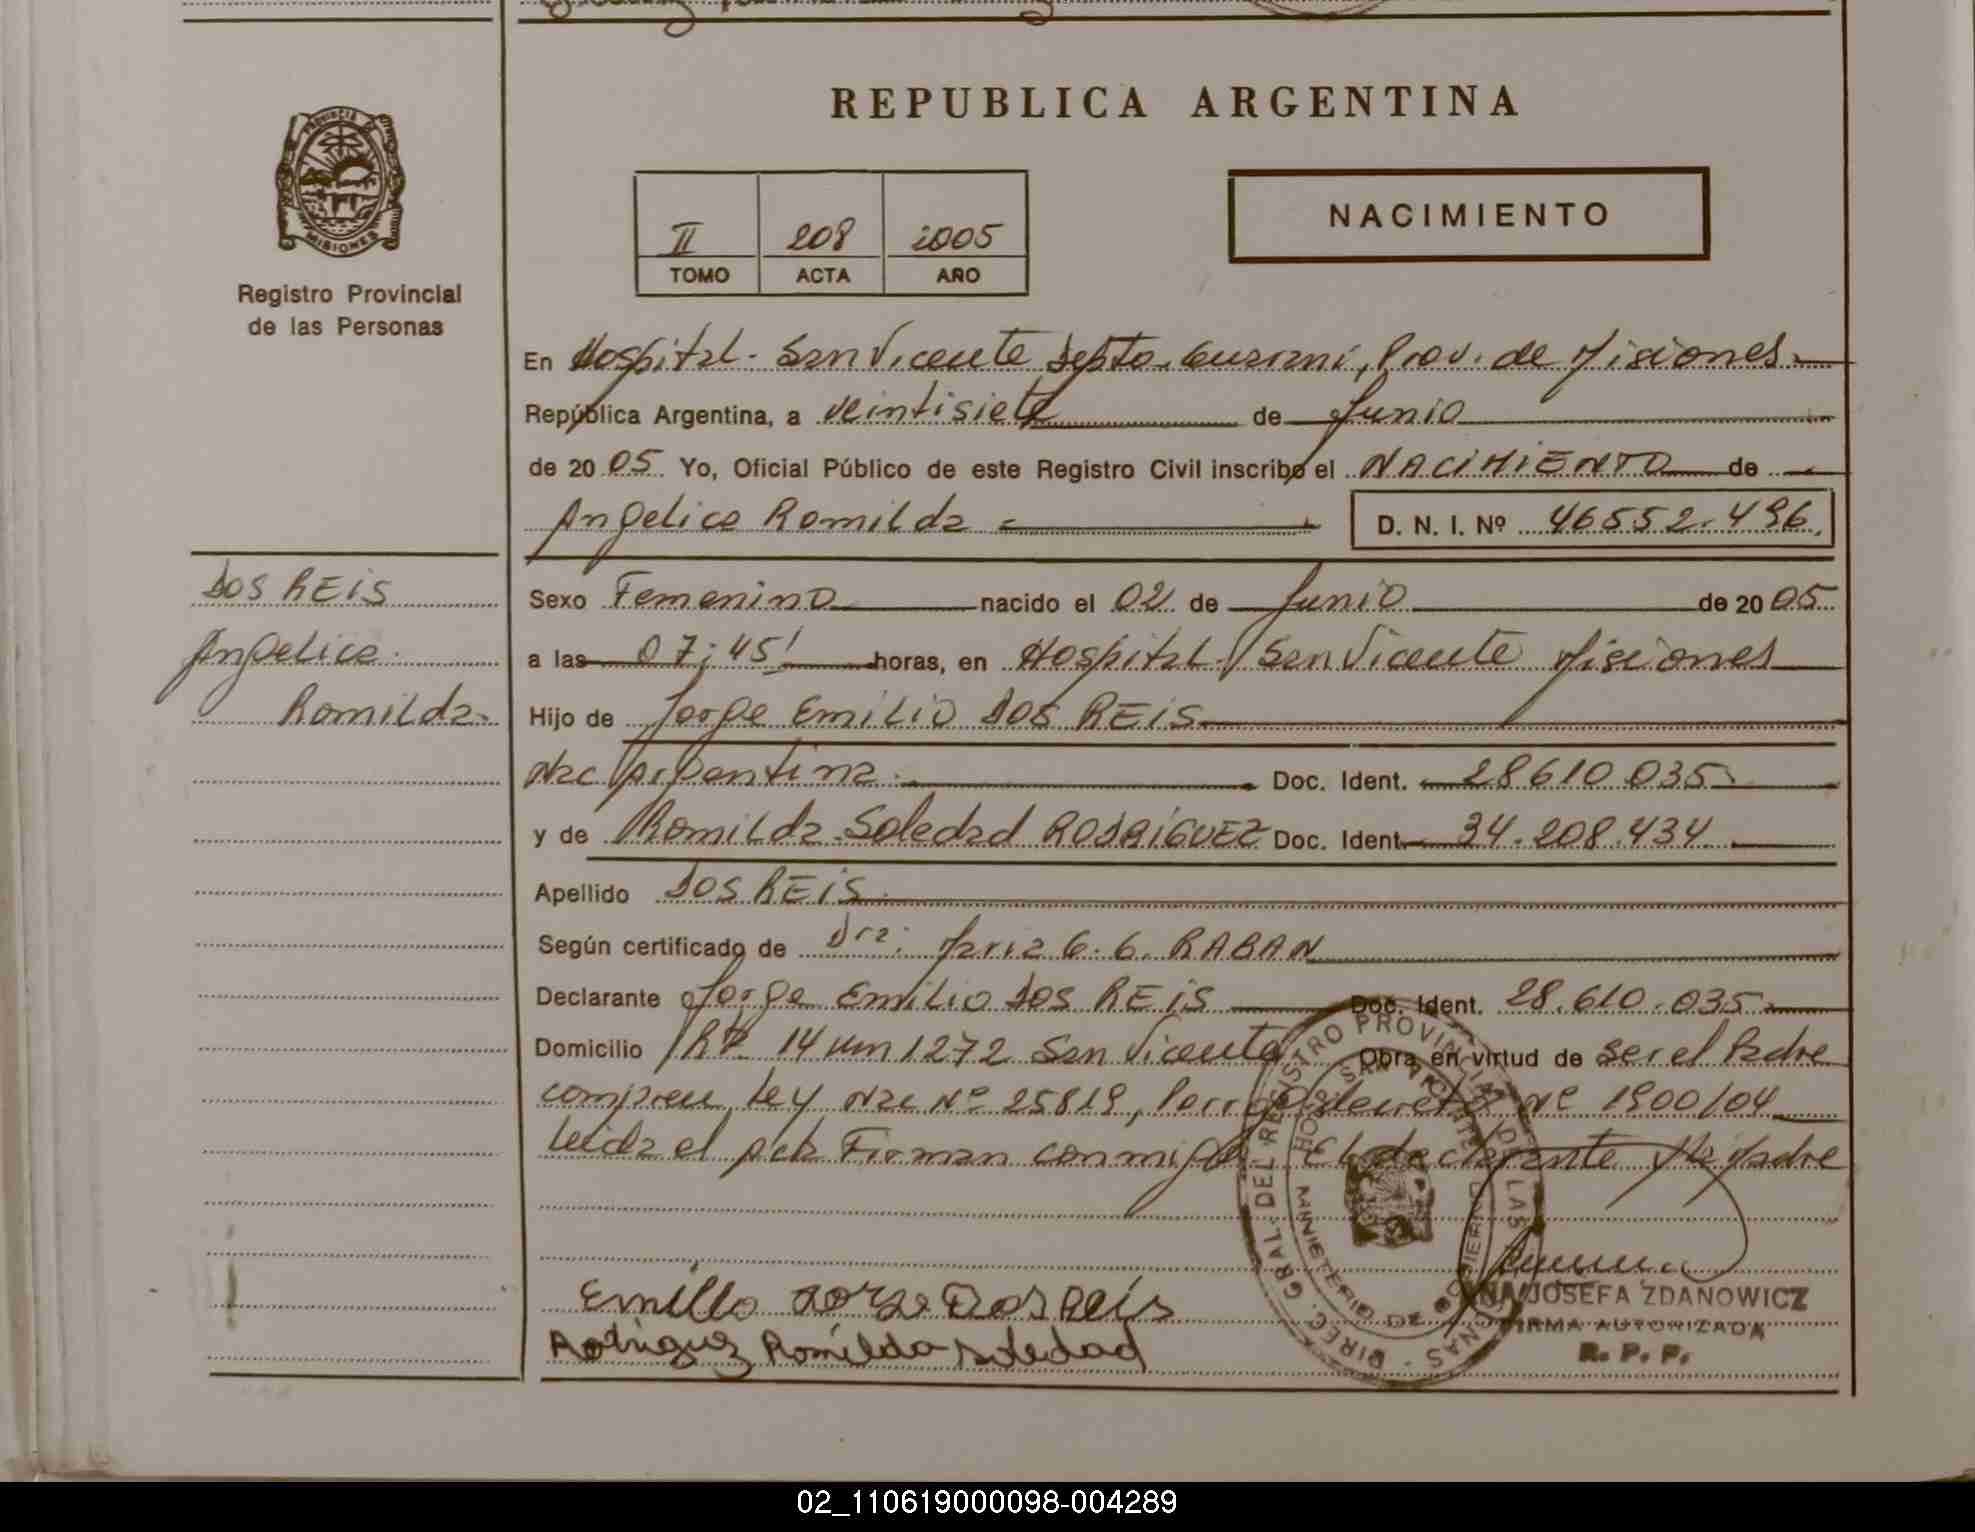 REPUBLICA ARGENTINA
PROVINCIA DE
MISIONES
Registro Provincial
de las Personas
II 208 2005
TOMO ACTA AÑO
NACIMIENTO
En Hospital - San Vicente Depto. Guarani, Prov. de Misiones
República Argentina, a veintisiete de Junio
de 2005 Yo, Oficial Público de este Registro Civil inscribo el NACIMIENTO de
Angelica Romilda D. N. I. Nº 46552.496
DOS REIS
Angelica
Romilda
Sexo Femenino nacido el 02 de Junio de 2005
a las 07:45' horas, en Hospital - San Vicente Misiones
Hijo de Jorge Emilio DOS REIS
Nac Argentina Doc. Ident. 28610.035
y de Romilda Soledad RODRIGUEZ Doc. Ident. 34.208.434
Apellido DOS REIS
Según certificado de Dra: Maria G. G. RABAN
Declarante Jorge Emilio DOS REIS Doc. Ident. 28.610.035
Domicilio 14 km 1272 San Vicente Obra en virtud de ser el Padre
Ley Nac Nº 25819, decreto Nº 1900/04
Leida el acta Firman conmigo El declarante y la Madre
Emilio Jorge Dos Reis
Rodriguez Romilda Soledad
JOSEFA ZDANOWICZ
FIRMA AUTORIZADA
R. P. P.
DIREC. GRAL. DEL REGISTRO PROVINCIAL DE LAS
MINISTERIO DE GOBIERNO
02_110619000098-004289